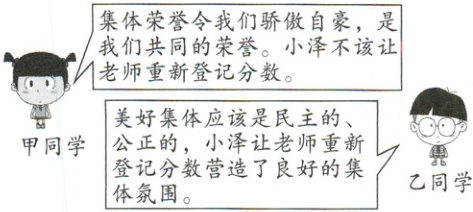 集体荣誉令我们骄傲自豪，是
我们共同的荣誉。小泽不该让
老师重新登记分数。
甲同学
美好集体应该是民主的、
公正的，小泽让老师重新
登记分数营造了良好的集
体氛围。
乙同学